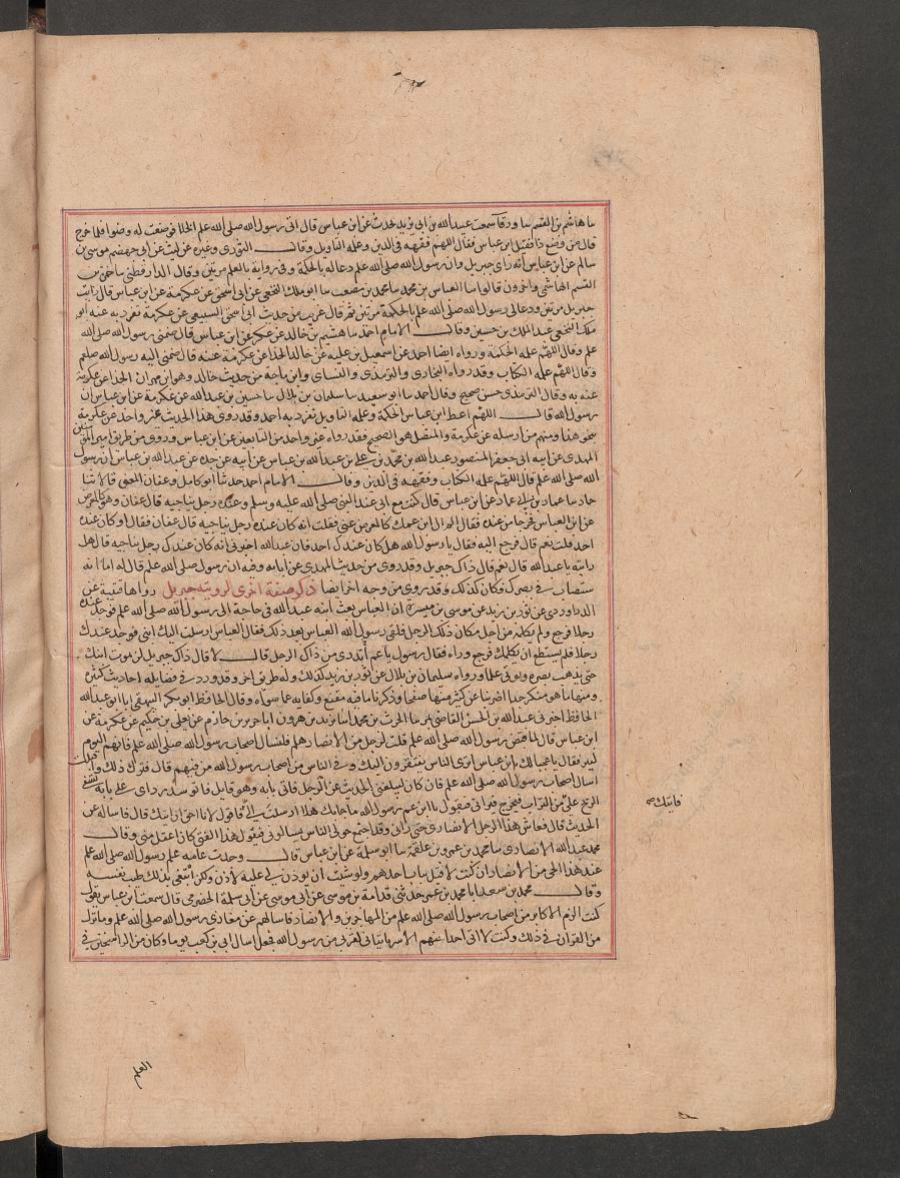 ثنا هاشم بن القسم ثنا ورقا سمعت عبيد الله بن ابي يزيد يحدث عن ابن عباس قال اتى رسول الله صلى الله علم الخلا فوضعت له وضوا فلما خرج
قال من وضع ذا فقيل ابن عباس فقال اللهم فقهه في الدين وعلمه التاويل وقال الثوري وغيره عن ليث عن ابي جهضم موسى بن
سالم عن ابن عباس انه راى جبريل وان رسول الله صلى الله علم دعا له بالحكمة وفي رواية بالعلم مرتين وقال الدارقطني ثنا حمزة بن
القسم الهاشمي واخرون قالوا ثنا العباس بن محمد ثنا محمد بن مصعب ثنا ابو ملك النخعي عن ابي اسحق عن عكرمة عن ابن عباس قال رايت
جبريل مرتين ودعا لي رسول الله صلى الله علم بالحكمة مرتين ثم قال غريب من حديث ابي اسحق السبيعي عن عكرمة تفرد به عنه ابو
ملك النخعي عبد الملك بن حسين وقال الامام احمد ثنا هشيم بن خالد عن عكرمة عن ابن عباس قال ضمني رسول الله صلى الله
علم وقال اللهم علمه الحكمة ورواه ايضا احمد عن اسمعيل بن علية عن خالد الحذا عن عكرمة عنه قال ضمني اليه رسول الله صلعم
وقال اللهم علمه الكتاب وقد رواه البخاري والترمذي والنساي وابن ماجة من حديث خالد وهو ابن مهران الحذا عن عكرمة
عنه به وقال الترمذي حسن صحيح وقال احمد ثنا ابو سعيد ثنا سليمان بن بلال ثنا حسين بن عبد الله عن عكرمة عن ابن عباس ان
رسول الله قال اللهم اعط ابن عباس الحكمة وعلمه التاويل تفرد به احمد وقد روى هذا الحديث غير واحد عن عكرمة
بنحو هذا ومنهم من ارسله عن عكرمة والمتصل هو الصحيح فقد رواه غير واحد من التابعين عن ابن عباس وروي من طريق امير المؤمنين
المهدي عن ابيه ابي جعفر المنصور عبد الله بن محمد بن علي بن عبد الله بن عباس عن ابيه عن جده عن عبد الله بن عباس ان رسول
الله صلى الله علم قال اللهم علمه الكتاب وفقهه في الدين وقال الامام احمد حدثنا ابو كامل وعفان المعنى قالا ثنا
حماد ثنا عمار بن ابي عمار عن ابن عباس قال كنت مع ابي عند النبي صلى الله عليه وسلم وعنده رجل يناجيه قال عفان وهو كالمعرض
عن ابن العباس فخرجنا من عنده فقال الم تر الى ابن عمك كالمعرض عني فقلت انه كان عنده رجل يناجيه قال عفان فقال او كان عنده
احد قلت نعم قال فرجع اليه فقال يا رسول الله هل كان عندك احد فان عبد الله اخبرني انه كان عندك رجل يناجيه قال هل
رايته يا عبد الله قال نعم قال ذاك جبريل وقد روي من حديث المهدي عن ابايه وفيه ان رسول الله صلى الله علم قال له اما انه
ستصاب في بصرك فكان كذلك وقد روي من وجه اخر ايضا ذكر صفة اخرى لرويته جبريل رواها قتيبة عن
الدراوردي عن ثور بن زيد عن موسى بن ميسرة ان العباس بعث ابنه عبد الله في حاجة الى رسول الله صلى الله علم فوجد عنده
رجلا فرجع ولم يكلمه من اجل مكان ذلك الرجل فلقي رسول الله العباس بعد ذلك فقال العباس ارسلت اليك ابني فوجد عندك
رجلا فلم يستطع ان يكلمك فرجع وراه فقال رسول يا عم أتدري من ذاك الرجل قال لا قال ذاك جبريل لن يموت ابنك
حتى يذهب بصره ويوتى علما ورواه سليمان بن بلال عن ثور بن زيد كذلك وله طريق اخر وقد ورد في فضايله احاديث كثيرة
ومنها ما هو منكر جدا اضربنا عن كثير منها صفحا وذكرنا ما فيه مقنع وكفاية عما سواه وقال الحافظ ابو بكر البيهقي انا ابو عبد الله
الحافظ اخبرني عبد الله بن الحسن القاضي بمرو ثنا الحرث بن محمد انبا يزيد بن هرون انبا جرير بن حازم عن يعلى بن حكيم عن عكرمة عن
ابن عباس قال لما قبض رسول الله صلى الله علم قلت لرجل من الانصار هلم فلنسال اصحاب رسول الله صلى الله علم فانهم اليوم
كثير فقال يا عجبا لك يا ابن عباس اترى الناس يفتقرون اليك وفي الناس من اصحاب رسول الله من فيهم قال فترك ذلك واقبلت
اسال اصحاب رسول الله صلى الله علم فان كان ليبلغني الحديث عن الرجل فاتي بابه وهو قايل فاتوسد ردائي على بابه تسفي
الريح علي من التراب فيخرج فيراني فيقول يا ابن عم رسول الله ما جا بك هلا ارسلت الي فاقول لا انا احق ان اتيك قال فاساله عن
الحديث قال فعاش هذا الرجل الانصاري حتى راني وقد اجتمع حولي الناس يسالوني فيقول هذا الفتى كان اعقل مني وقال
محمد عبد الله الانصاري ثنا محمد بن عمرو بن علقمة ثنا ابو سلمة عن ابن عباس قال وجدت عامة علم رسول الله صلى الله علم
عند هذا الحي من الانصار ان كنت لاقيل بباب احدهم ولو شيت ان يوذن لي عليه لاذن ولكن ابتغي بذلك طيب نفسه
وقال محمد بن سعد انبا محمد بن عمر حدثني قدامة بن موسى عن ابي سلمة الحضرمي قال سمعت ابن عباس يقول
كنت الزم الاكابر من اصحاب رسول الله صلى الله علم من المهاجرين والانصار فاسالهم عن مغازي رسول الله صلى الله علم وما نزل
من القران في ذلك وكنت لا اتي احدا منهم الا سر باتياني لقربي من رسول الله فجعل اسال ابي بن كعب يوما وكان من الراسخين في
فاتيك صح
العلم